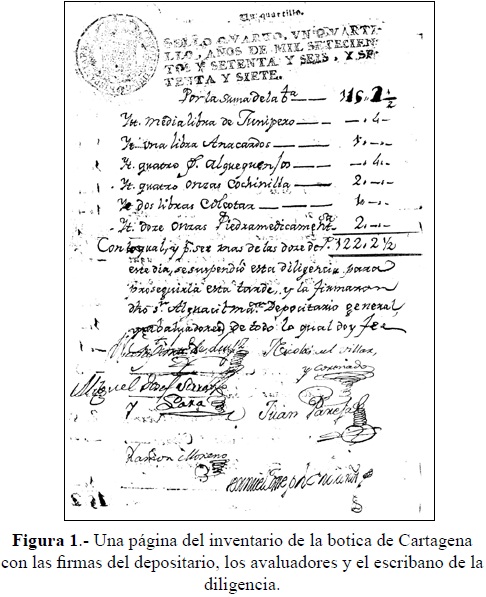 Un quartillo.
SELLO QVARTO, VN QVARTI-
LLO, AÑOS DE MIL SETECIEN-
TOS Y SETENTA Y SEIS, Y SE-
TENTA Y SIETE.
Por la suma de la bta
Yt. media libra de Junipero — 4 —
Yt. una libra Anacardos —
Yt. quatro Alquequenjes — 4 —
Yt. quatro onzas Cochinilla — 2 —
Yt. dos libras Colcotar —
Yt. doze onzas Piedramedicamentsa 2 —
Con lo qual, y pr. ser mas de las doze de 122,2 ½
este dia, se suspendió esta diligencia para
proseguirla esta tarde, y la firmaron
dho sr. Alguacil mor. Depositario general,
y abaluadores de todo lo qual doy fee
Nicolás del Villar
y Coronado
Miguel
y Juan
Ramon Moreno
Figura 1.- Una página del inventario de la botica de Cartagena
con las firmas del depositario, los avaluadores y el escribano de la
diligencia.